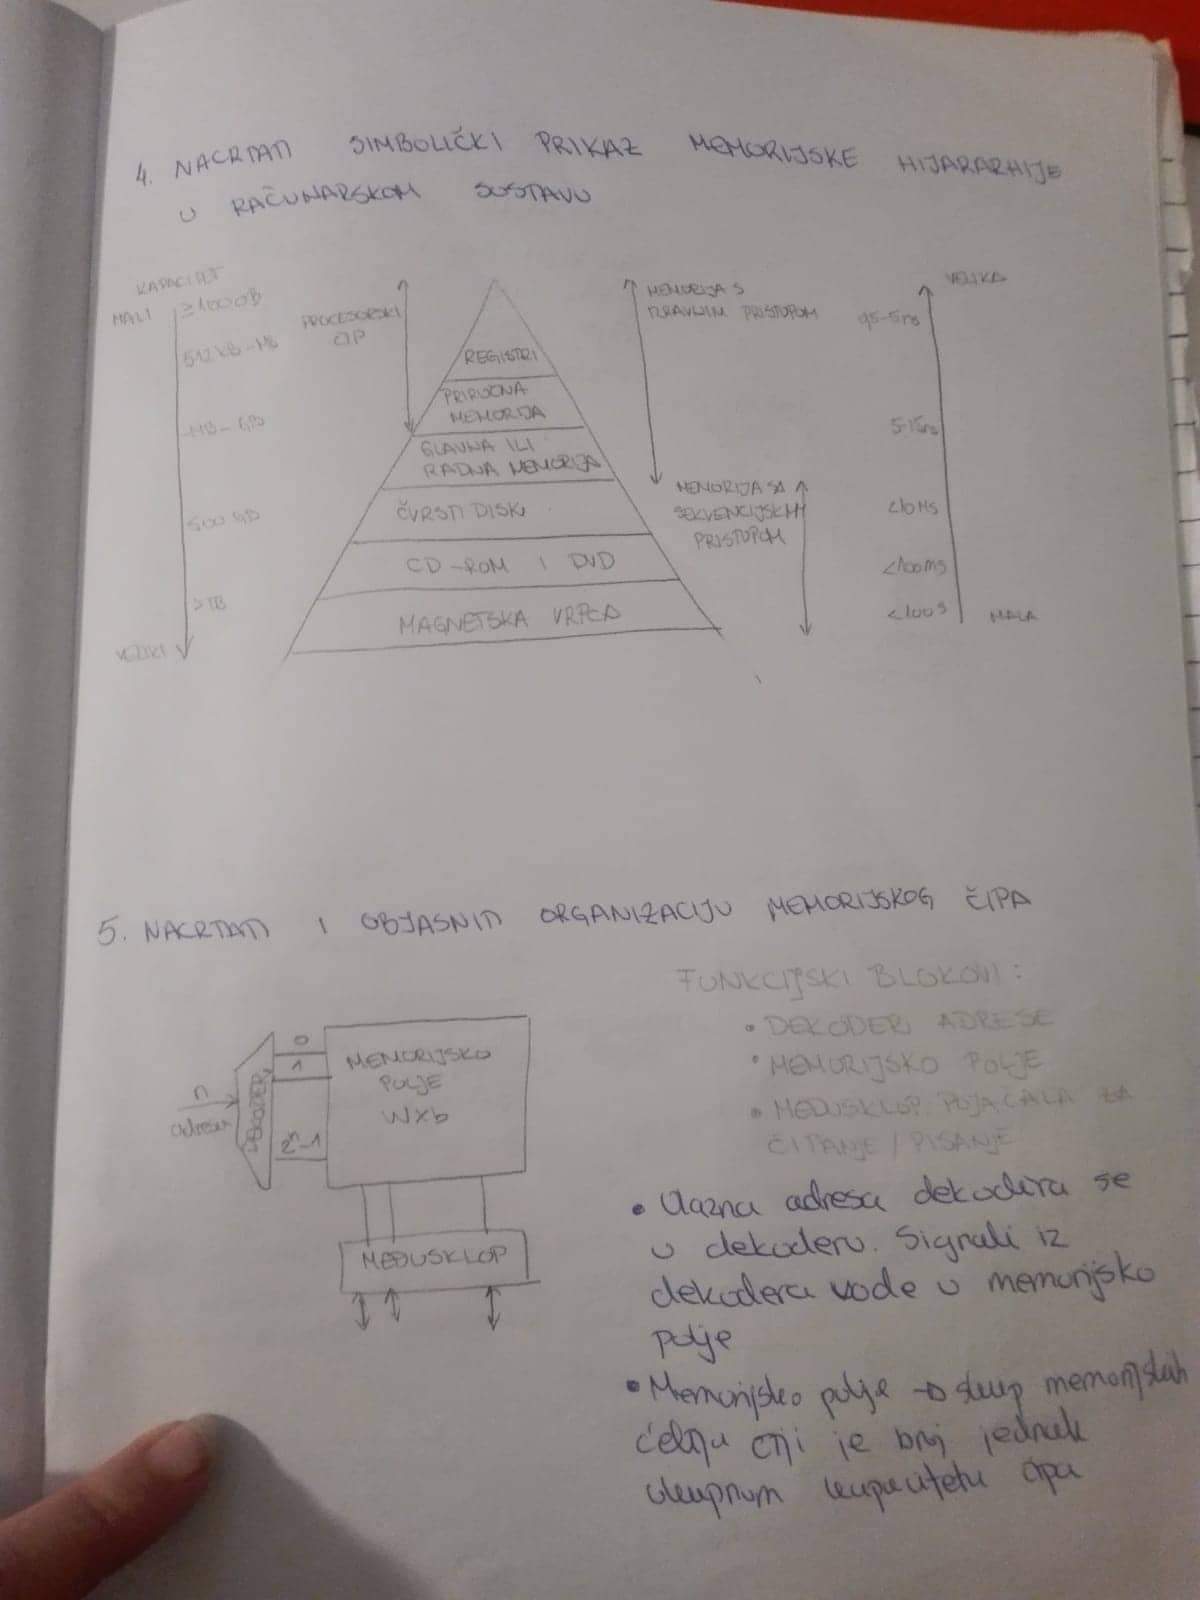 4. NACRTATI SIMBOLIČKI PRIKAZ MEMORIJSKE HIJARARHIJE
U RAČUNARSKOM SUSTAVU
KAPACITET
MALI
≥1000B
512KB-MB
MB-GB
500 GB
>TB
VELIKI
PROCESORSKI
ČIP
REGISTRI
PRIRUČNA
MEMORIJA
GLAVNA ILI
RADNA MEMORIJA
ČVRSTI DISK
CD-ROM I DVD
MAGNETSKA VRPCA
MEMORIJA S
IZRAVNIM PRISTUPOM
MEMORIJA SA
SEKVENCIJSKIM
PRISTUPOM
VELIKA
5-15ns
<10ms
<100ms
<100s
MALA
5. NACRTATI I OBJASNITI ORGANIZACIJU MEMORIJSKOG ČIPA
n
adresa
DEKODER
0
1
2ⁿ-1
MEMORIJSKO
POLJE
WXb
MEĐUSKLOP
FUNKCIJSKI BLOKOVI:
• DEKODERI ADRESE
• MEMORIJSKO POLJE
• MEĐUSKLOP POJAČALA ZA
ČITANJE / PISANJE
• Ulazna adresa dekodira se
u dekoderu. Signali iz
dekodera vode u memorijsko
polje
• Memorijsko polje → skup memorijskih
ćelija čiji je broj jednak
ukupnom kapacitetu čipa